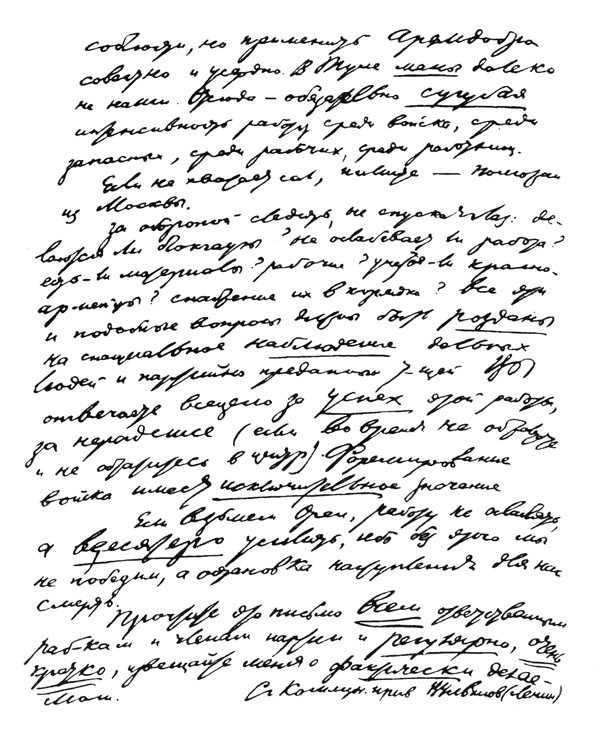 соблюсти, но применить
совестно и усердно. В Туле массы далеко
не наши. Отсюда — обязательно сугубая
интенсивность работы среди войска, среди
запасных, среди рабочих, среди работниц.
Если не хватает сил, пишите — поможем
из Москвы.
За обороной следить, не спуская глаз: де-
лаются ли блокгаузы? Не ослабевает ли работа?
есть-ли материалы? рабочие? учатся-ли красно-
армейцы? снабжение их в порядке? Все эти
и подобные вопросы должны быть розданы
на специальное наблюдение дельных
людей и партийно преданных т-щей. Вы
отвечаете всецело за успех этой работы,
за нерадение (если во время не обратите
и не обратитесь в центр). Формирование
войска имеет исключительное значение
Если возьмем Орел, работу не ослаблять,
а вдесятеро усилить, ибо без этого мы
не победим, а остановка наступления для нас
смерть.
Прочтите это письмо всем ответственным
раб-кам и членам партии и регулярно, очень
кратко, извещайте меня о фактически делае-
мом.
С Коммун. прив (Ленин)